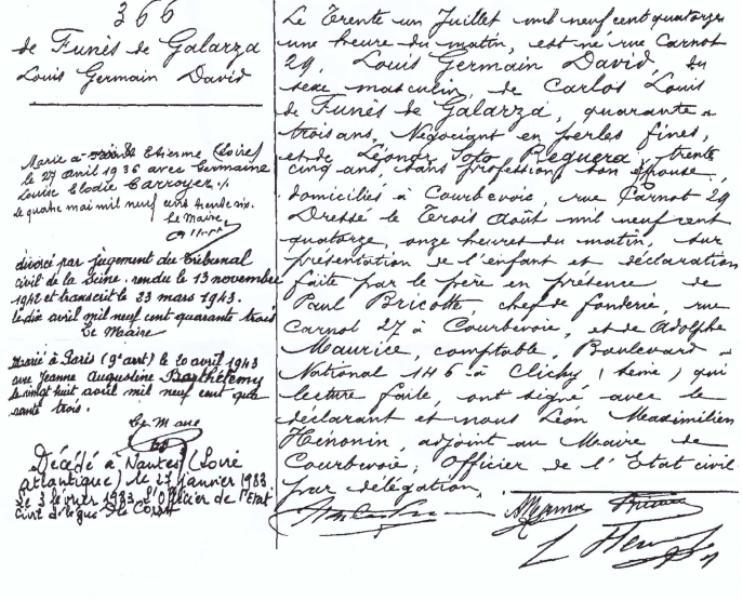 366
de Funès de Galarza
Louis Germain David
Marié à Saint Etienne (Loire)
le 27 avril 1936 avec Germaine
Louise Elodie Carroyer ./.
le quatre mai mil neuf cent trente six.
Le Maire,
divorcé par jugement du Tribunal
civil de la Seine. rendu le 13 novembre
1942 et transcrit le 23 mars 1943.
le dix avril mil neuf cent quarante trois
Le Maire
Marié à Paris (9e arrt) le 20 avril 1943
avec Jeanne Augustine Barthélemy
le vingt huit avril mil neuf cent qua-
rante trois.
Le Maire
Décédé à Nantes (Loire
atlantique) le 27 janvier 1983
Le 3 février 1983 L'Officier de l'Etat
civil délégué
Le Trente un Juillet mil neuf cent quatorze
une heure du matin, est né rue Carnot
29, Louis Germain David, du
sexe masculin, de Carlos Louis
de Funès de Galarza, quarante-
trois ans, Négociant en perles fines,
et de Léonor Soto Reguera, trente
cinq ans sans profession, son épouse,
domiciliés à Courbevoie, rue Carnot 29
Dressé le Trois Août mil neuf cent
quatorze, onze heures du matin, sur
présentation de l'enfant et déclaration
faite par le père en présence de
Paul Bricotte chef de fonderie, rue
Carnot 27 à Courbevoie, et de Adolphe
Maurice, comptable, Boulevard
National 146 à Clichy (Seine) qui
lecture faite, ont signé avec le
déclarant et nous Léon Maximilien
Hénonin, adjoint au Maire de
Courbevoie, Officier de l'Etat civil
par délégation.